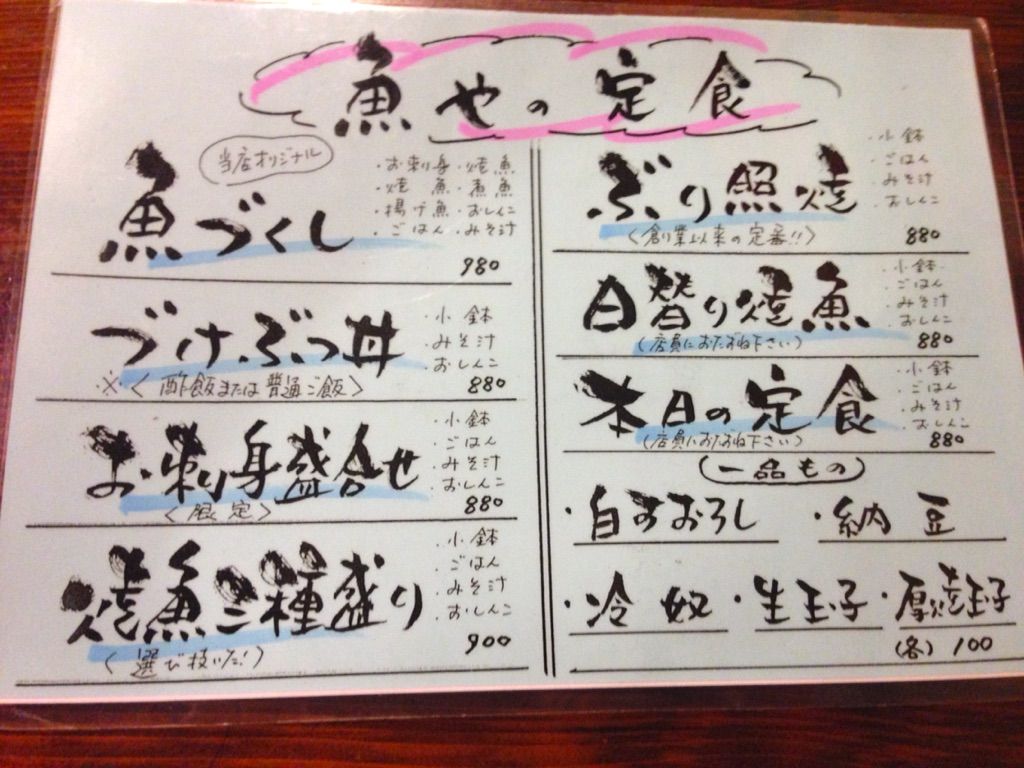 魚やの定食
当店オリジナル
魚づくし
・お刺身・焼魚
・焼魚・煮魚
・揚げ魚・おしんこ
・ごはん・みそ汁
980
づけぶつ丼
・小鉢
・みそ汁
・おしんこ
※〈酢飯または普通ご飯〉
880
お刺身盛合せ
〈限定〉
・小鉢
・ごはん
・みそ汁
・おしんこ
880
焼魚二種盛り
・小鉢
・ごはん
・みそ汁
・おしんこ
900
ぶり照焼
〈創業以来の定番!!〉
・小鉢
・ごはん
・みそ汁
・おしんこ
880
日替り焼魚
(店員におたずね下さい)
・小鉢
・ごはん
・みそ汁
・おしんこ
880
本日の定食
(店員におたずね下さい)
・小鉢
・ごはん
・みそ汁
・おしんこ
880
(一品もの)
・白すおろし
・納豆
・冷奴・生玉子・厚焼玉子
(各)100